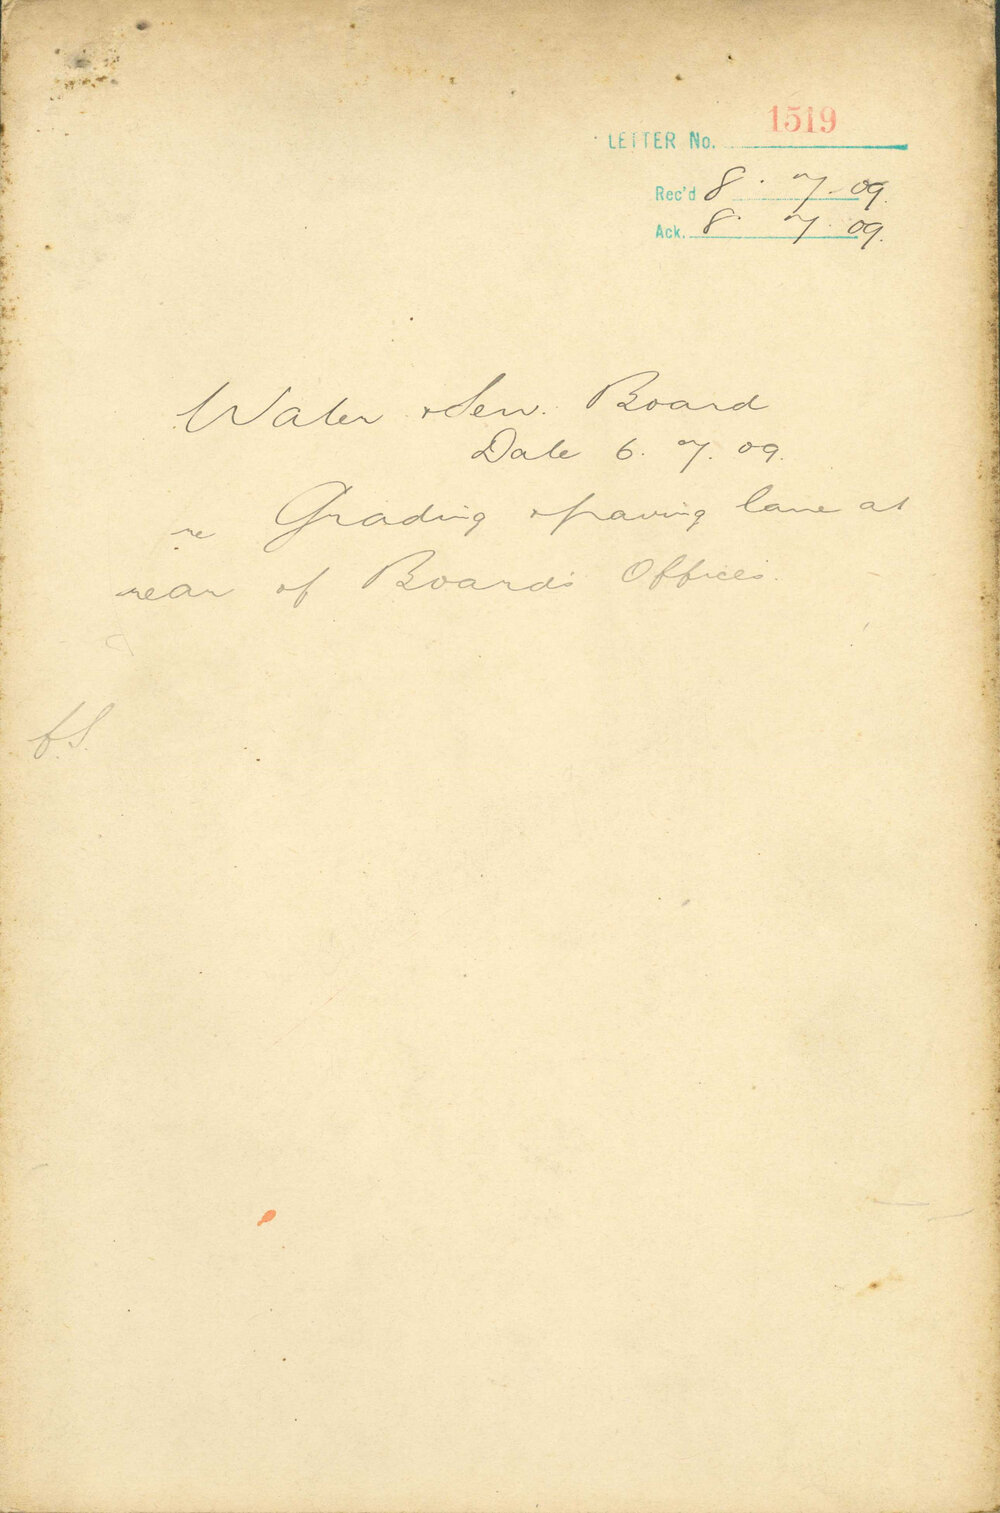 LETTER No. 1519
Rec'd 8. 7. 09.
Ack. 8. 7. 09.
Water & Sew. Board
Date 6. 7. 09.
re Grading & paving lane at
rear of Board's Offices.